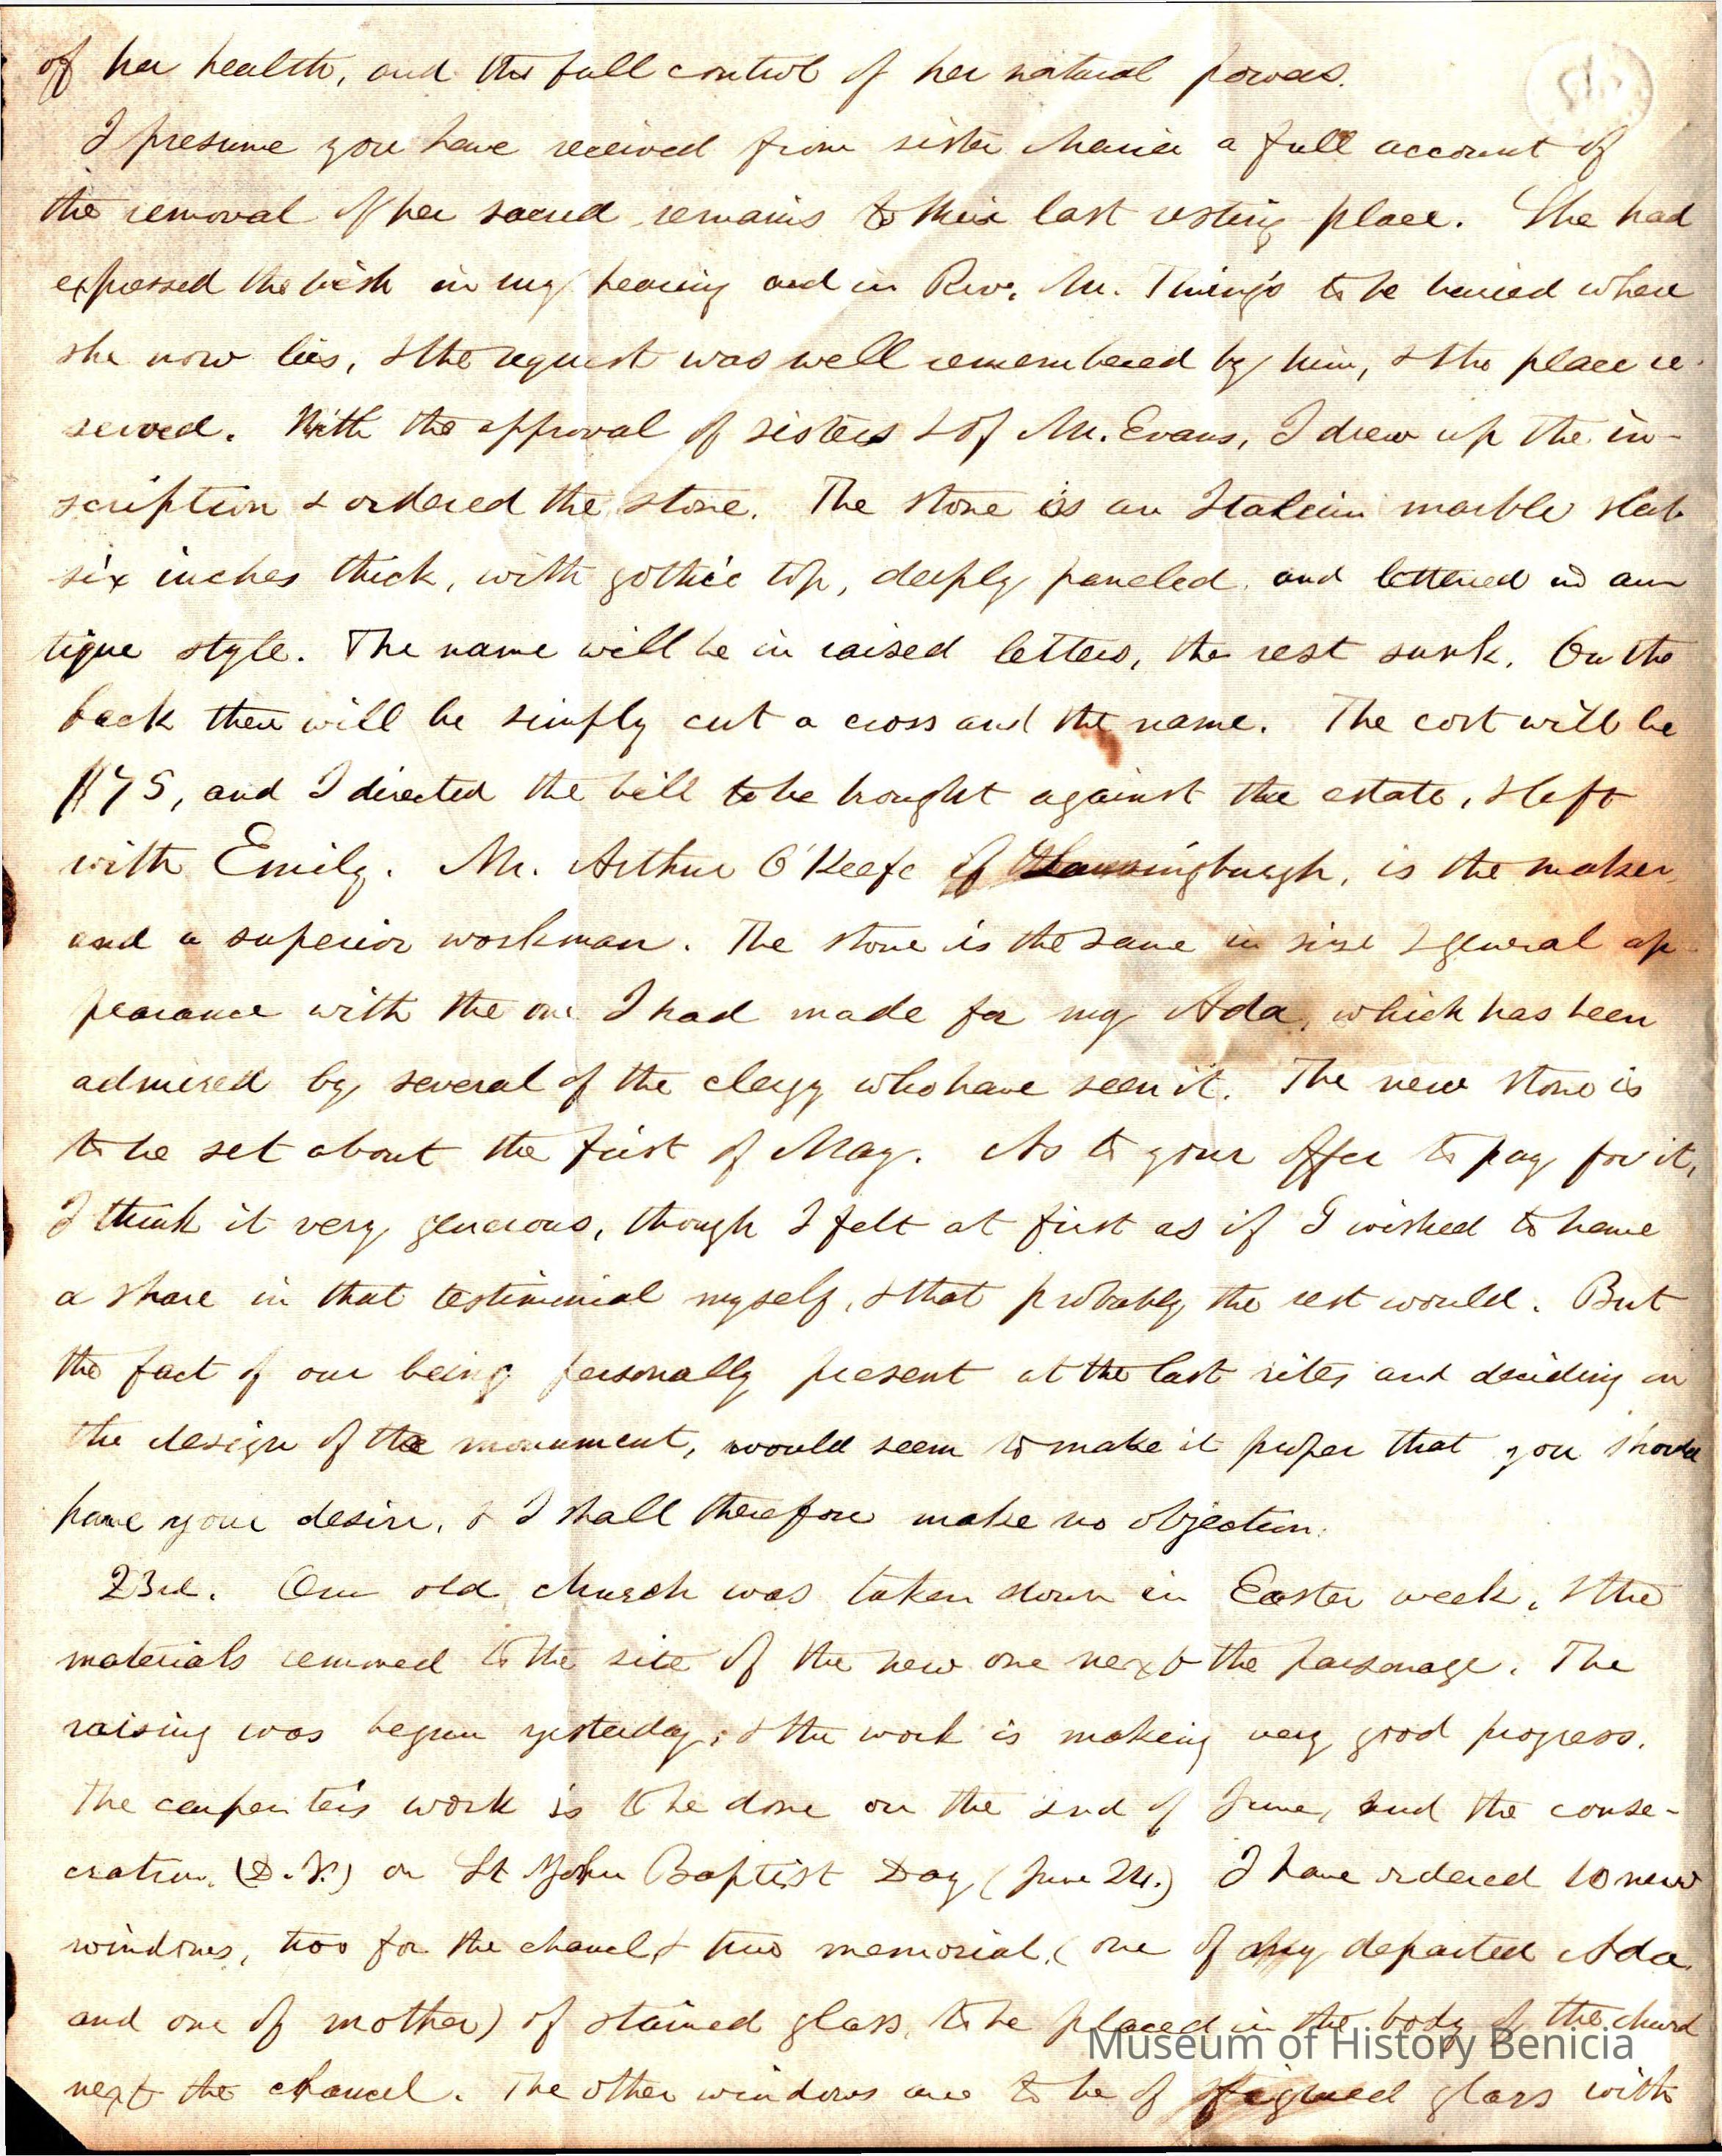 of her health, and the full control of her natural powers.
I presume you have received from sister Maria a full account of
the removal of her sacred remains to their last resting place. She had
expressed the wish in my hearing and in Rev. Mr. to be buried where
she now lies, & the request was well remembered by him, & the place re-
served. With the approval of sisters & of Mr. Evans, I drew up the in-
scription & ordered the stone. The stone is an Italian marble slab
six inches thick, with gothic top, deeply paneled and lettered in an
tique style. The name will be in raised letters, the rest sunk. On the
back there will be simply cut a cross and the name. The cost will be
$75, and I directed the bill to be brought against the estate, & left
with Emily. Mr. Arthur O'Keefe of Lansingburgh, is the maker,
and a superior workman. The stone is the same in size & general ap
pearance with the one I had made for my Ada, which has been
admired by several of the clergy who have seen it. The new stone is
to be set about the first of May. As to your offer to pay for it,
I think it very generous, though I felt at first as if I wished to have
a share in that testimonial myself, & that probably the rest would. But
the fact of our being personally present at the last rites and deciding on
the design of the monument, would seem to make it proper that you should
have your desire, & I shall therefore make no objection.
23rd. Our old church was taken down in Easter week, & the
materials removed to the site of the new one next the parsonage. The
raising was begun yesterday; & the work is making very good progress.
The carpenters work is to be done on the 2nd of June, and the conse-
cration (D.V.) on St John Baptist Day (June 24.) I have ordered 10 new
windows, two for the chancel & two memorial, (one of my departed Ada
and one of mother) of stained glass, to be placed in the body of the church
next the chancel. The other windows are to be of glass with
Museum of History Benicia